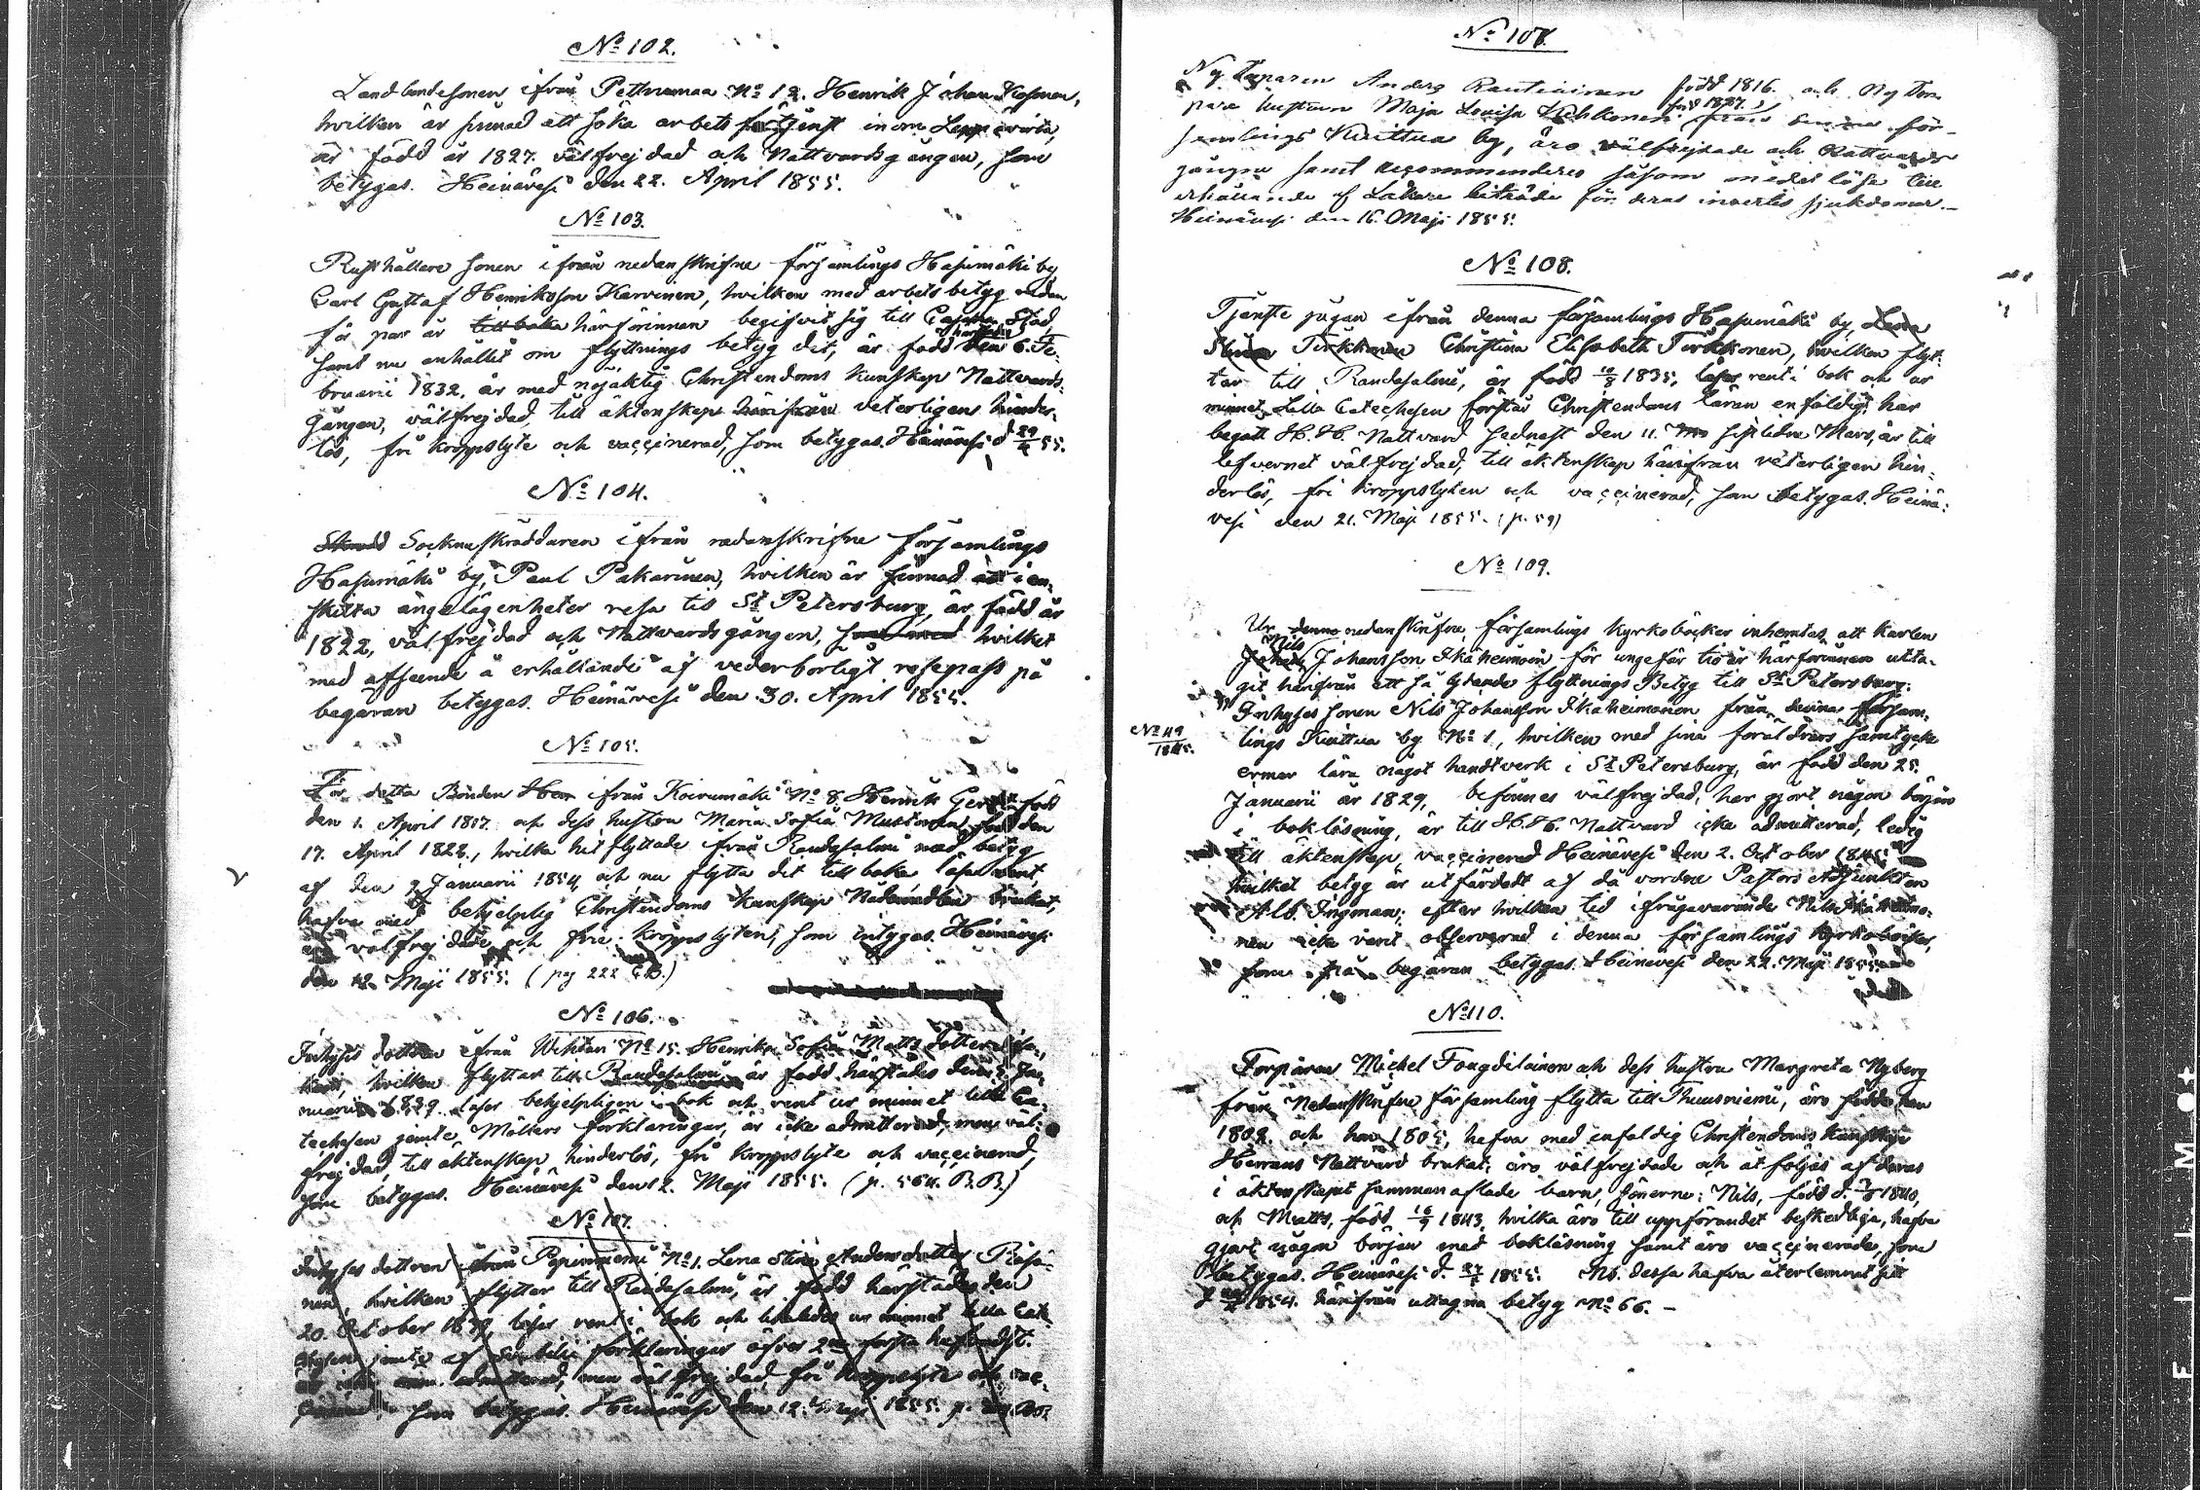 No 102.
Landbondesonen ifrån Pettrumaa No 12. Henrik Johan Kosonen,
hvilken är sinnad att söka arbets förtjenst inom Leppävirta,
är född år 1827. välfrejdad och Nattvardsgången, som
betygas. Heinävesi den 22. April 1855.
No 103.
Rusthållare sonen ifrån nedanskrifne församlings Hasumäki by
Carl Gustaf Henriksson Karvinen, hvilken med arbets betyg redan
för par år tillbaka härförinnan begifvit sig till Stad,
samt nu anhållit om flyttnings betyg dit, är född den 6. Fe-
bruarii 1832, är med nöjaktig Christendoms kunskap Nattvards-
gången, välfrejdad, till äktenskap härifrån veterligens hinder-
lös, fri kroppslyte och vaccinerad, som betygas. Heinävesi d 29/4 55.
No 104.
Socknuskräddaren ifrån nedanskrifne församlings
Hasumäki by, Paul Pakarinen, hvilken är sinnad att i en-
skilta angelägenheter resa til St Petersburg, är född år
1822, välfrejdad och Nattvardsgången, hvilket
med afseende å erhållandet af vederbörligt resepass på
begäran betygas. Heinävesi den 30. April 1855.
No 105.
För detta Bonden ifrån Koirumäki No 8. Henrik född
den 1. April 1807. och dess hustru Maria Sofia Mustonen, född den
17. April 1828., hvilka hit flyttade från Randasalmi med betyg
af den 2 Januarii 1854, och nu flytta dit tillbaka, läsa rent,
hafva med behjelplig Christendoms kunskap Nådemedlen brukat,
äro välfrejdade och frie kroppslyten, som intygas. Heinävesi
den 12. Maji 1855. (pag 222 C.B.)
No 106.
Inhyses dottren ifrån Wihtari No 15. Henrika Sofia Matts dotter
hvilken flyttar till Randasalmi är född härstädes den Ja-
nuarii 1839. läser behjelpligen i bok och rent ur minnet lilla Ca-
techesen jämte Möllers förklaringar, är icke admitterad, men väl-
frejdad, till äktenskap hinderlös, fri kroppslyte och vaccinerad,
som betygas. Heinävesi den 12. Maji 1855. (p. 564. B.B.)
No 107.
Inhyses dottren från Pepinniemi No 1. Lena Stina Andersdotter Räsä-
nen, hvilken flyttar till Randasalmi, är född härstädes den
20. October 1839, läser rent i bok och likaledes ur minnet lilla Cat-
echesen jemte af förklaringar öfver 2ne första
är icke admitterad, men välfrejdad, fri kroppslyte och vac-
som betygas. Heinävesi den 12. Maji 1855. p.
No 107.
Ny Torparen Anders Rautiainen född 1816. och Ny Tor-
pare hustrun Maja Lovisa född 1827. från denna för-
samlings Kuittua by, äro välfrejdade och Nattvards-
gångne samt recommenderes såsom medellöse till
erhållande af Läkare biträde för deras invertes sjukdomar.-
Heinävesi den 16. Maji 1855.
No 108.
Tjenste pigan ifrån denna församlings Hasumäki by, Lena
Stina Tirkkonen Christina Elisabeth Tirkkonen, hvilken flyt-
tar till Randasalmi, är född 10/8 1835, läser rent i bok och ur
minnet Lilla Catechesen förstår Christendoms läran enfäldigt, har
begått H. H. Nattvard sednast den 11. sistledne Mars, är till
lefvernet välfrejdad, till äktenskap härifrån veterligen hin-
derlös, fri kroppslyten och vaccinerad, som betygas. Heinä-
vesi den 21. Maji 1855. (p. 59)
No 109.
Ur denna nedanskrifne församlings kyrkoböcker inhemtas, att karlen
Nils
Johan Johansson Ikäheimoin för ungefär tio år härförinnan utta-
git härifrån ett så lydande flyttnings Betyg till St Petersburg:
Inhyses sonen Nils Johansson Ikäheimonen från denna församl-
No 49
1845.
lings Kuittua by No 1, hvilken med sina föräldrars samtycke
ernar lära något handtverk i St Petersburg, är född den 25.
Januarii år 1829, befinnes välfrejdad, har gjort någon början
i bokläsning, är till H. H. Nattvard icke admitterad, ledig
till äktenskap, vaccinerad Heinävesi den 2. October 1845
hvilket betyg är utfärdadt af då vordne Pastors Adjunkten
Alb. Ingman; efter hvilken tid ifrågavarande Nils Ikäheimo-
nen icke varit observerad i denna församlings kyrkoböcker,
som på begäran betygas. Heinävesi den 22. Maji 1855.
No 110.
Torparen Michel Tongdilainen och dess hustru Margreta Nyberg
från Nedanskrifne församling flytta till Thuusniemi, äro födde han
1802. och hon 1805, hafva med enfaldig Christendoms kunskap
Herrans Nattvard brukat; äro välfrejdade och åtföljas af deras
i äktenskapet sammanaflade barn, sönerne: Nils, född d. 1840,
och Matts, född 16/9 1843, hvilka äro till uppförandet beskedliga, hafva
gjort någon början med bokläsning samt äro vaccinerade, som
betygas. Heinävesi d. 27/5 1855. NB. dessa hafva återlemnat sitt
1854. härifrån uttagna betyg No 66. -